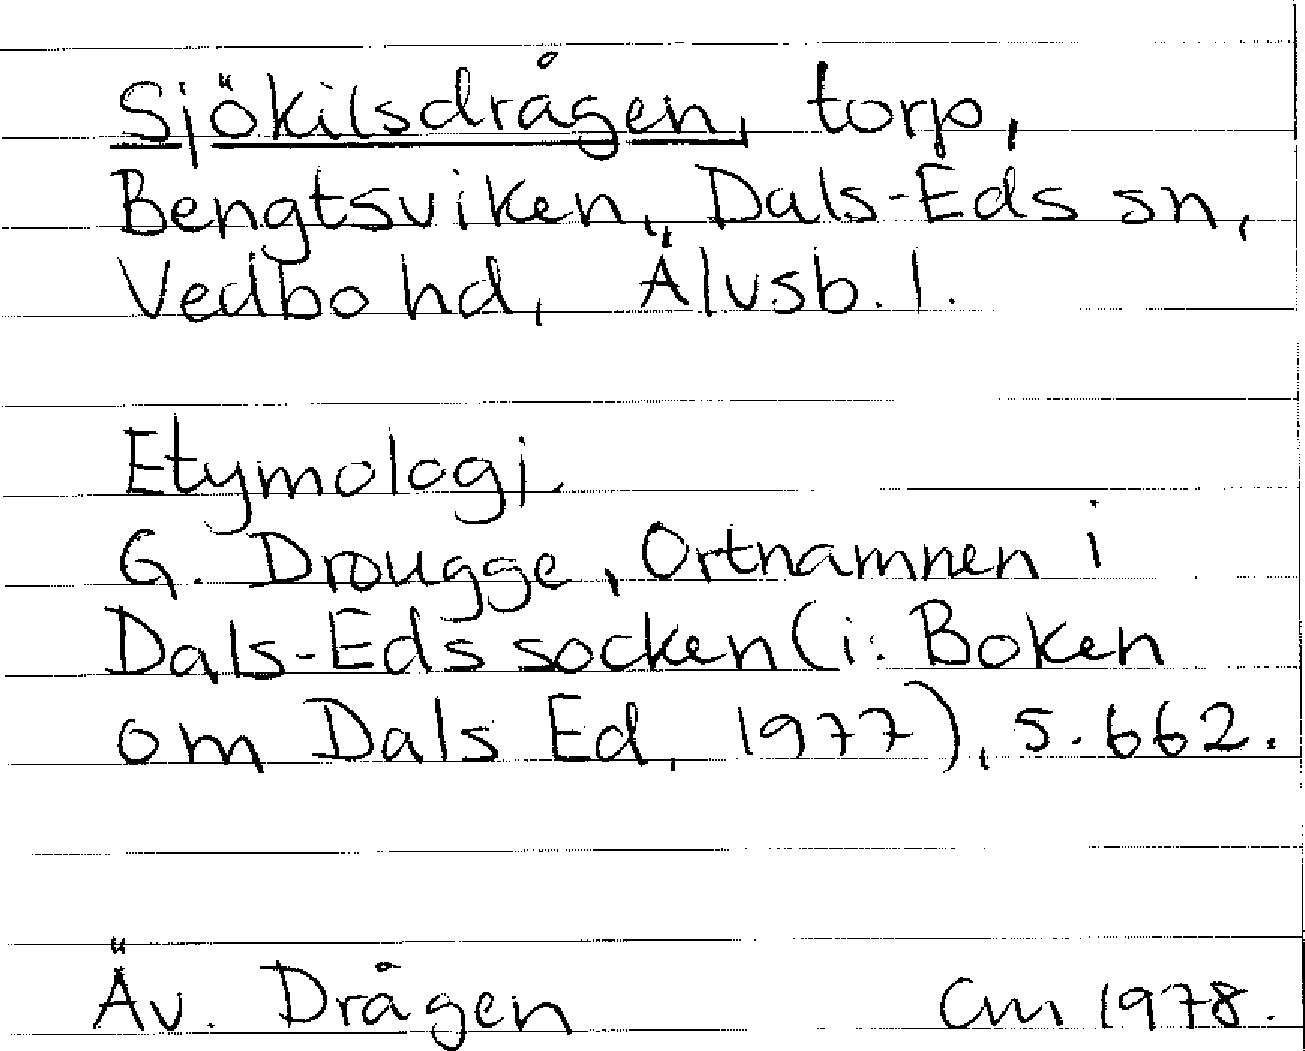 Sjökilsdrågen, torp,
Bengtsviken, Dals-Eds sn,
Vedbo hd, Älvsb. l.
Etymologi
G. Drougge, Ortnamnen i
Dals-Eds socken (i: Boken
om Dals Ed, 1977), s. 662.
Äv. Drågen Cm 1978.